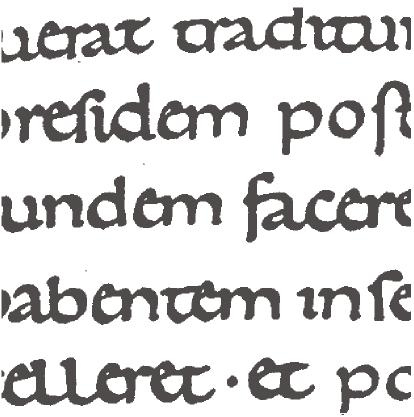 uerat traditu
preſidem poſt
undem facere
habentem in ſe
telleret · et po